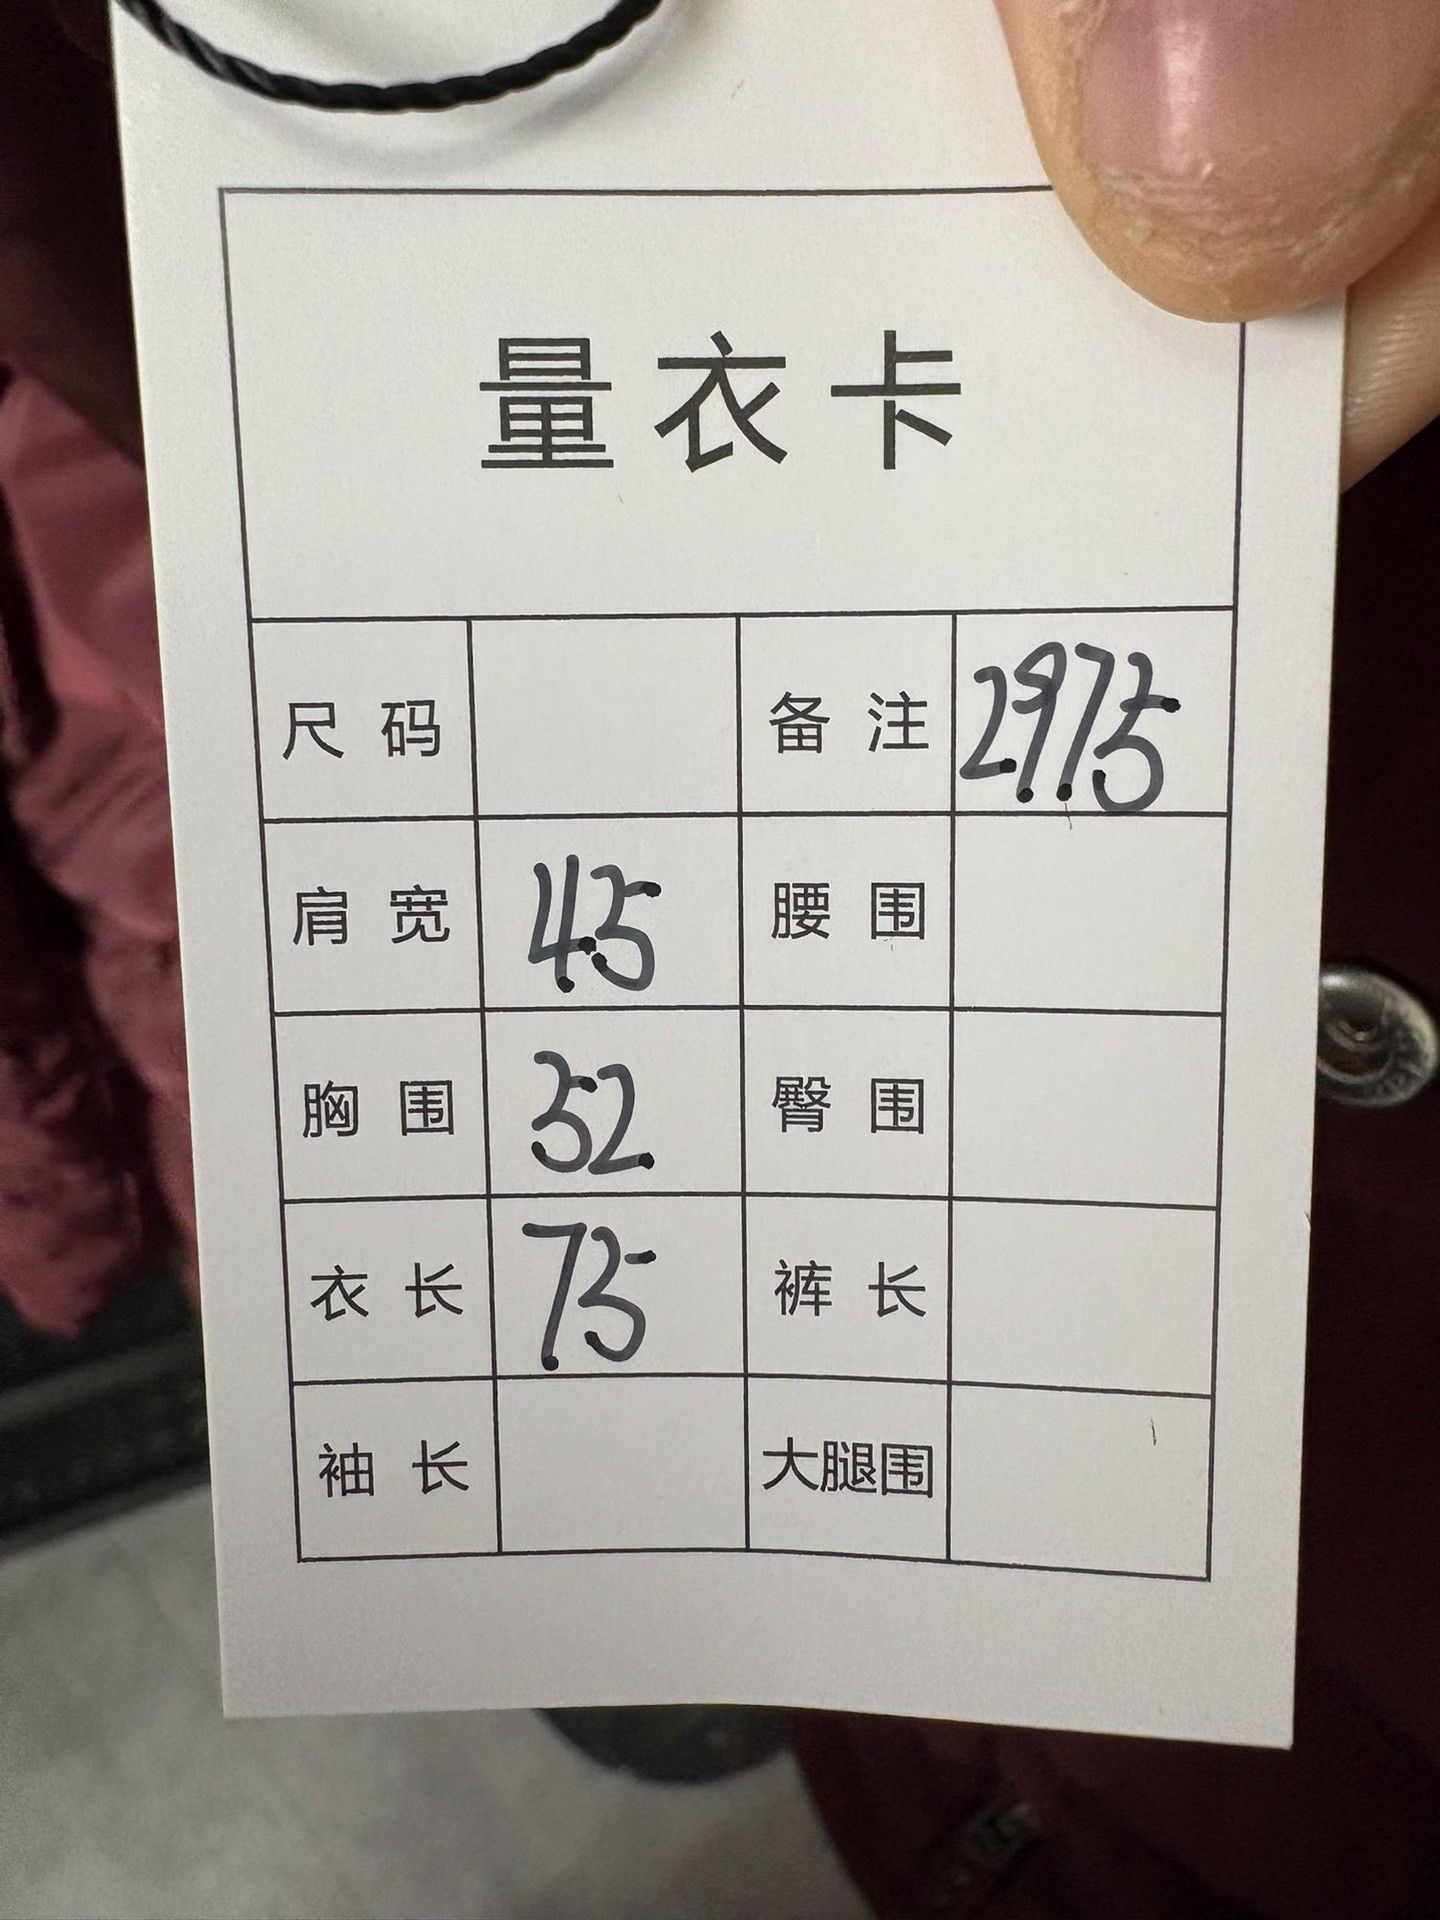 量衣卡
尺码 备注 2975
肩宽 45 腰围
胸围 52 臀围
衣长 75 裤长
袖长 大腿围